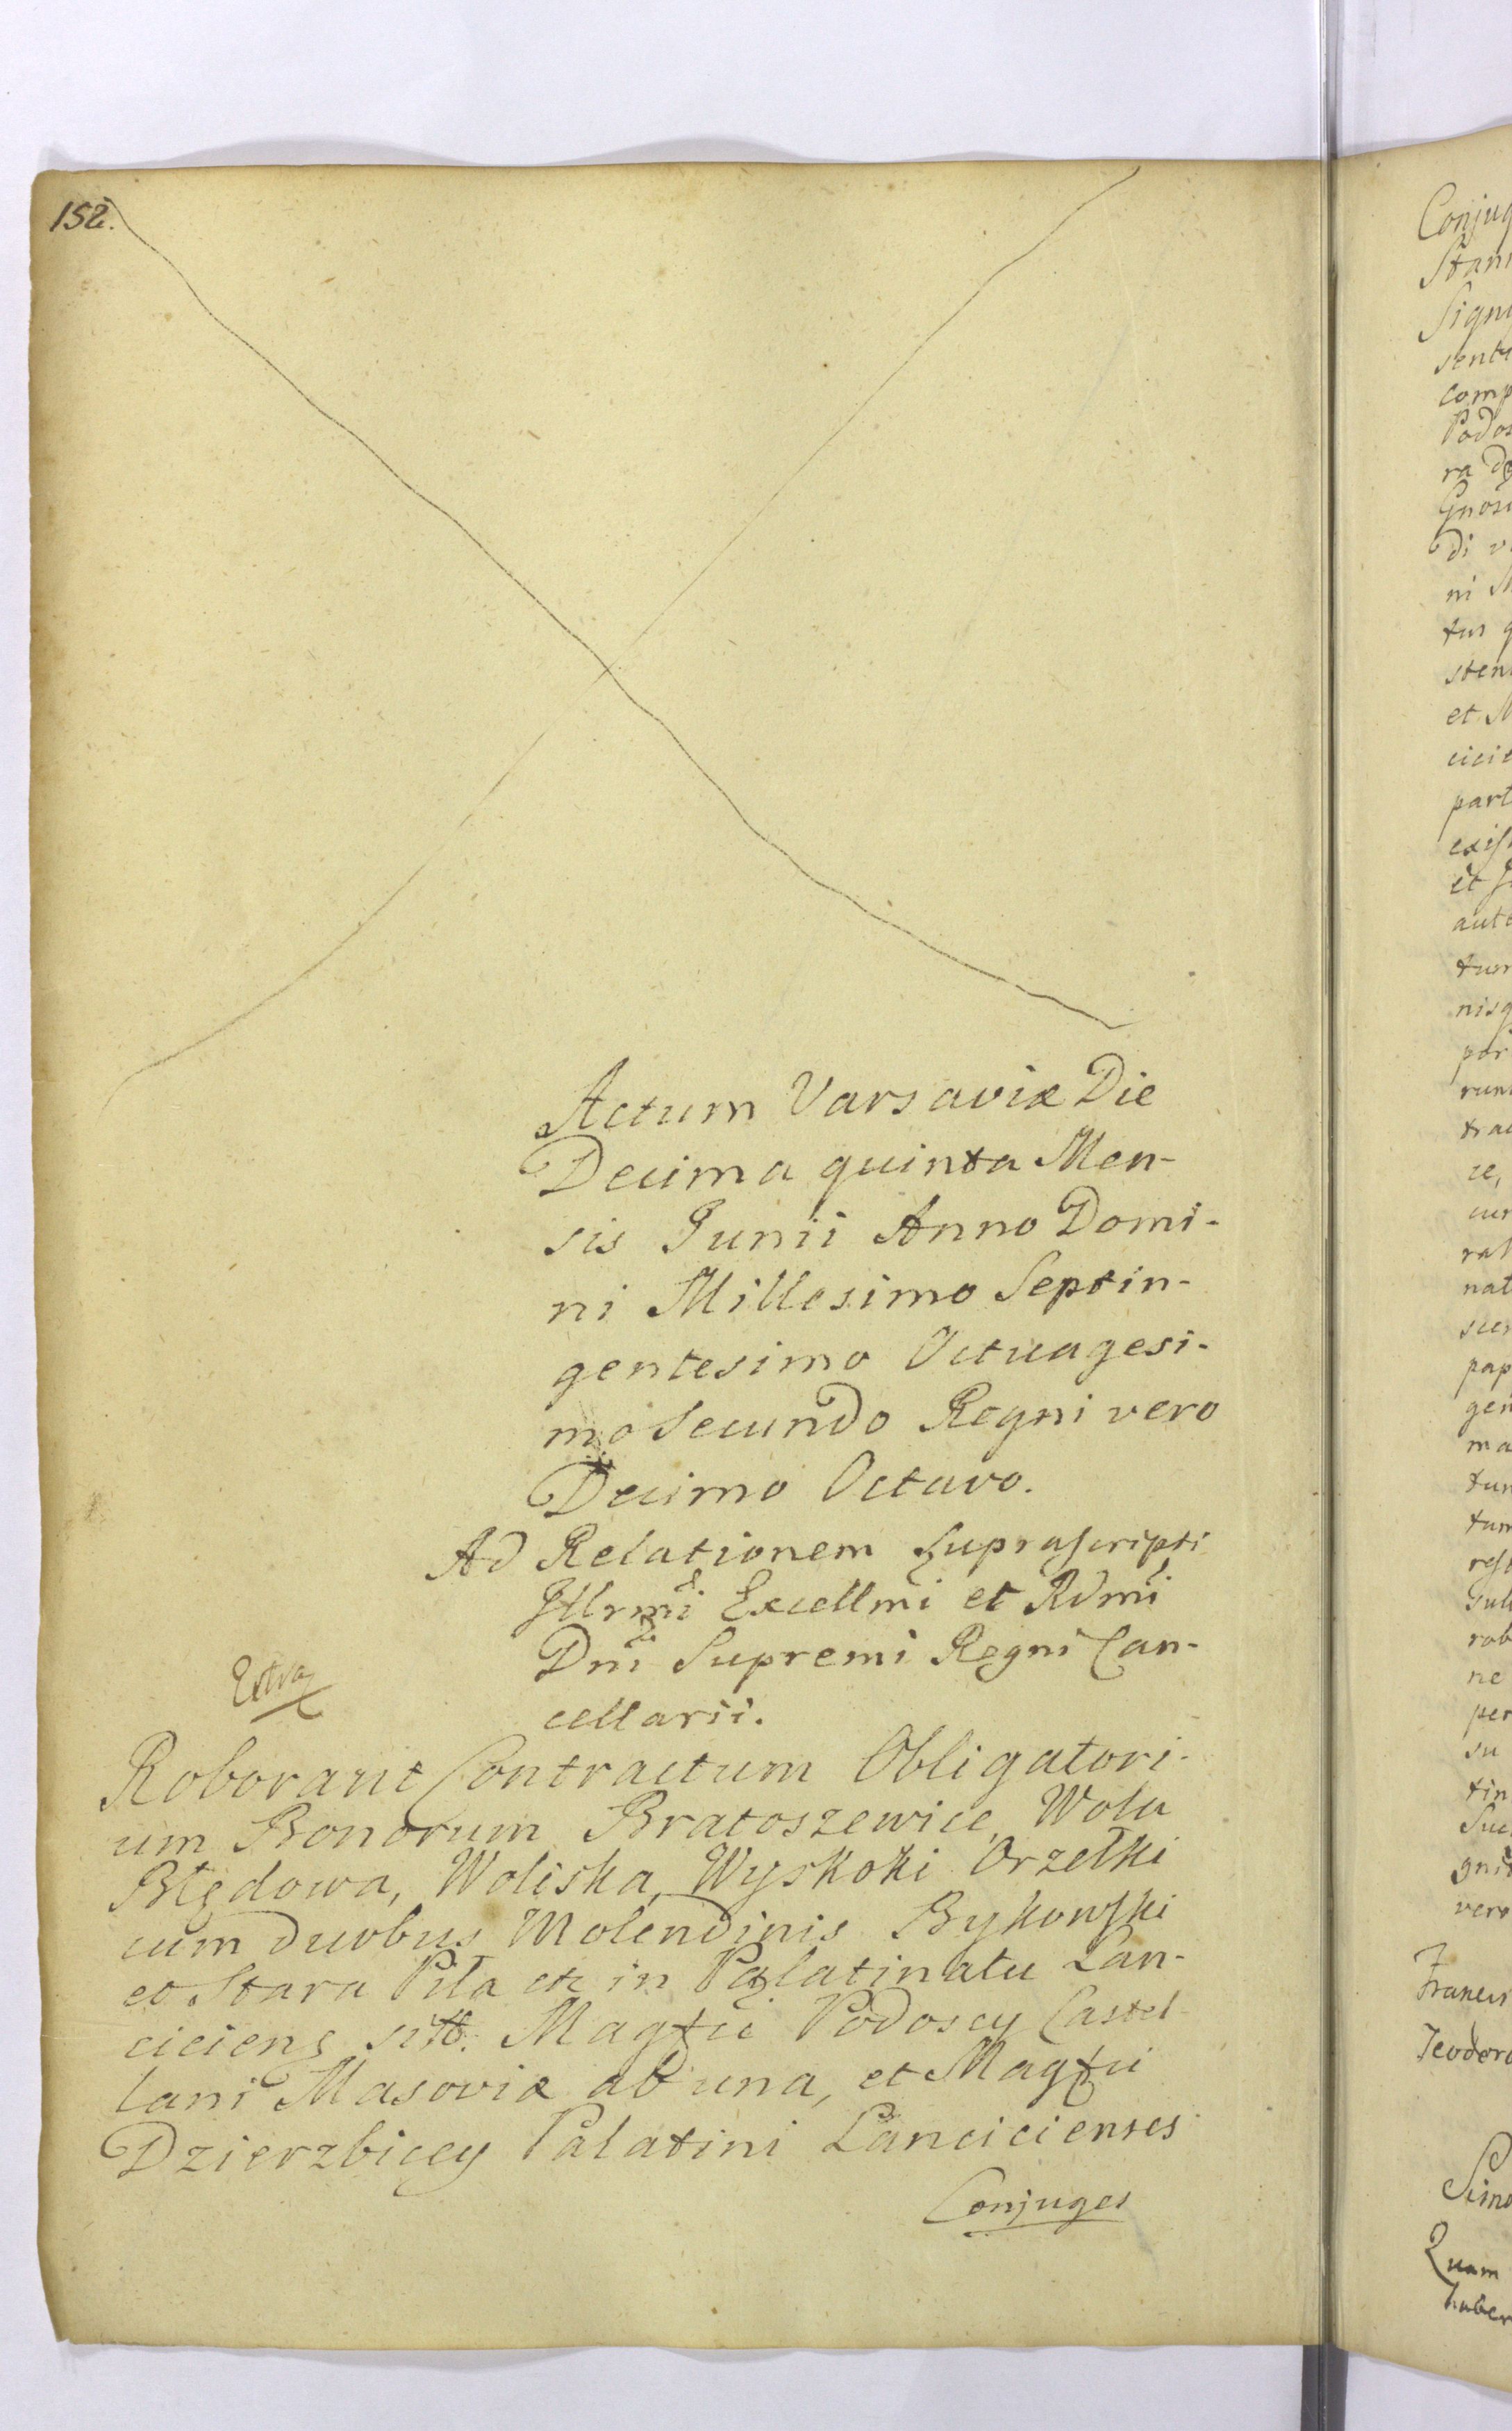 152.
Actum Varsaviæ Die
Decima quinta Men-
sis Junii Anno Domi-
ni Millesimo Septin-
gentesimo Octuagesi-
mo Secundo Regni vero
Decimo Octavo.
Ad Relationem Suprascripti
Illrmi Excellmi et Rdmi
Dni Supremi Regni Can-
cellarii.
Extra
Roborant Contractum Obligatori-
um Bonorum Bratoszewice, Wola
Błędowa, Woliska, Wyskoki Orzełki
cum duobus Molendinis Bykowski
et Stara Piła etc in Palatinatu Lan-
ciciens sitt. Magfci Podoscy Castel-
lani Masoviæ ab una, et Magfci
Dzierzbiccy Palatini Lancicienses
Conjuges
Conjug
Stani
Signi
sentu
comp
Podos
ra
Gnosi
di
ni
tus
sten
et M
cicie
part
exis
et
aute
tum
nisq
por
runt
trac
ce,
cur
rat
nat
scri
pap
gen
ma
tum
tam
rese
gul
rob
ne
per
su
tin
Suc
gni
vero
Francis
Teodoro
Quam
haber